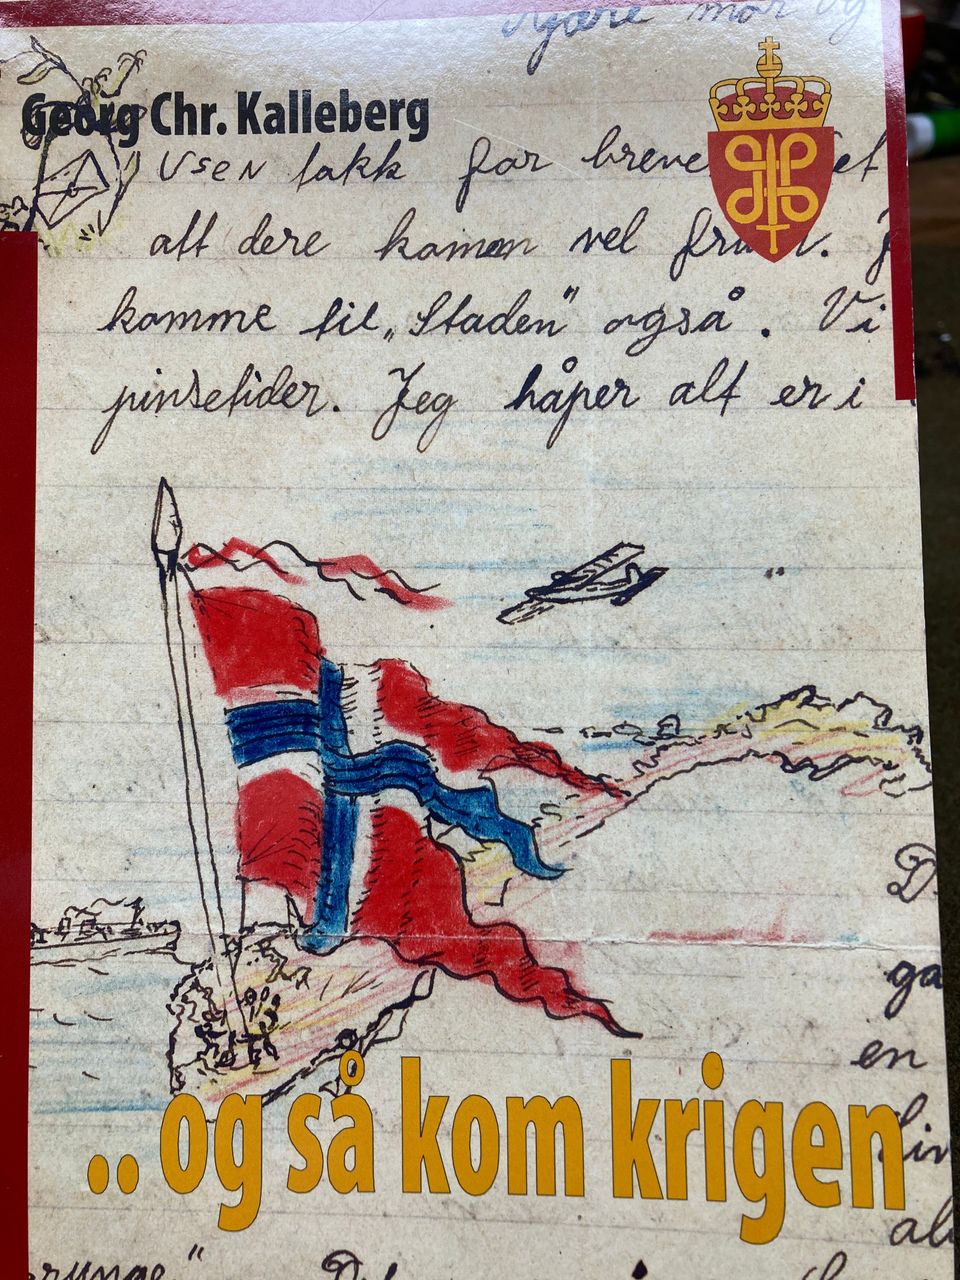 Kjære mor og
Georg Chr. Kalleberg
Usen takk for breve
alt dere kommen vel fram.
komme til „Staden” også. Vi
pinsetider. Jeg håper alt er i
D
ga
en
.. og så kom krigen
”